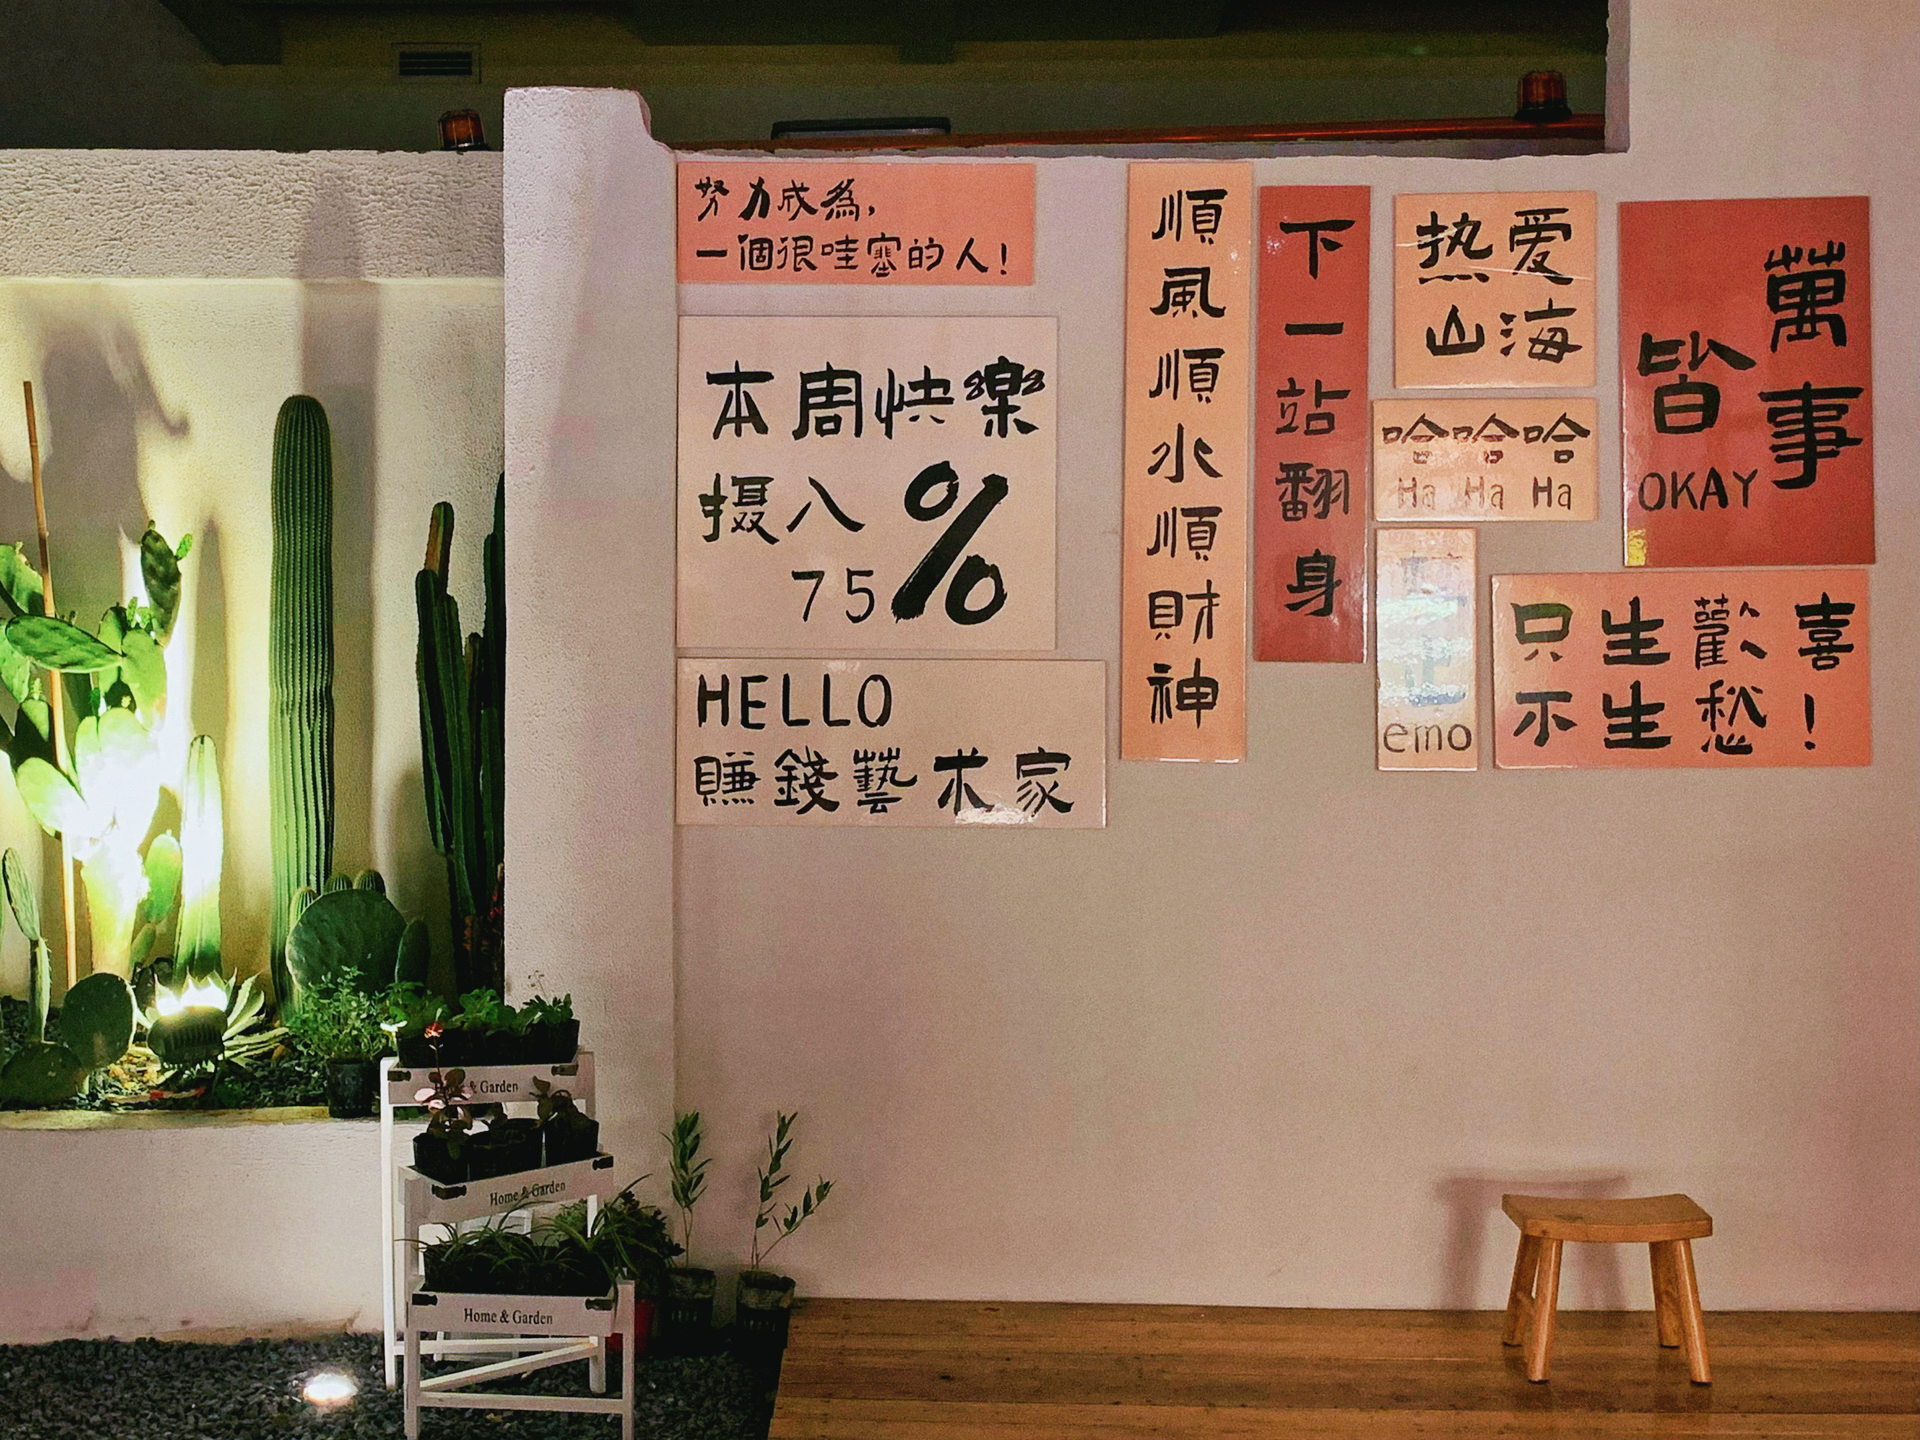 努力成為,
一個很哇塞的人!
本周快樂
摄入
75%
HELLO
賺錢藝术家
順風順水順財神
下一站翻身
热爱
山海
哈哈哈
Ha Ha Ha
emo
萬事
皆
OKAY
只生歡喜
不生愁!
Home & Garden
Home & Garden
Home & Garden